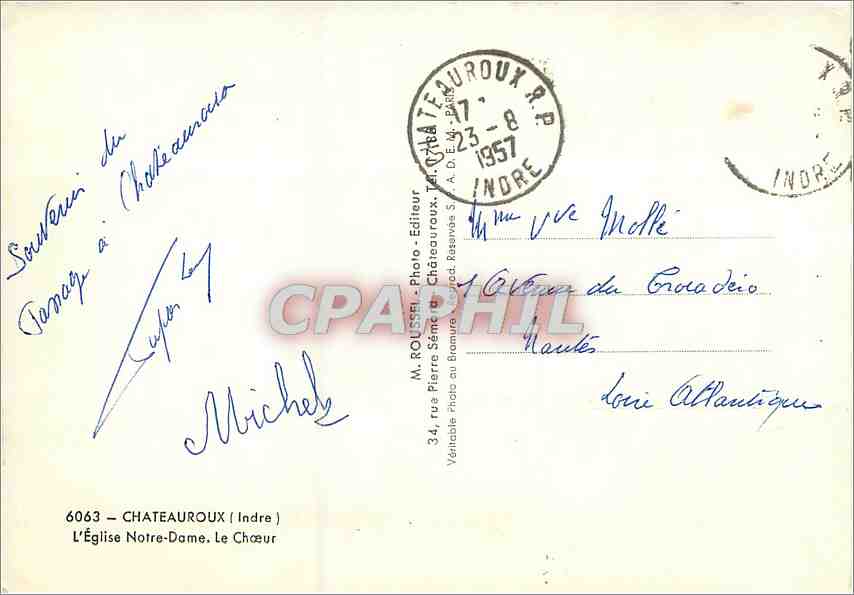 Souvenir du
Passage à Chateauroux
Michel
6063 — CHATEAUROUX ( Indre )
L'Église Notre-Dame. Le Chœur
M. ROUSSEL - Photo - Editeur
34, rue Pierre Sémard - Châteauroux. Tél.
Véritable Photo au Bromure - Reprod. Réservée S. P. A. D. E. M. - PARIS
CHATEAUROUX R.P.
17
23 - 8
1957
INDRE
INDRE
Mme Vve
1 Avenue du Trocadéro
Nantes
Loire Atlantique
CPAPHIL